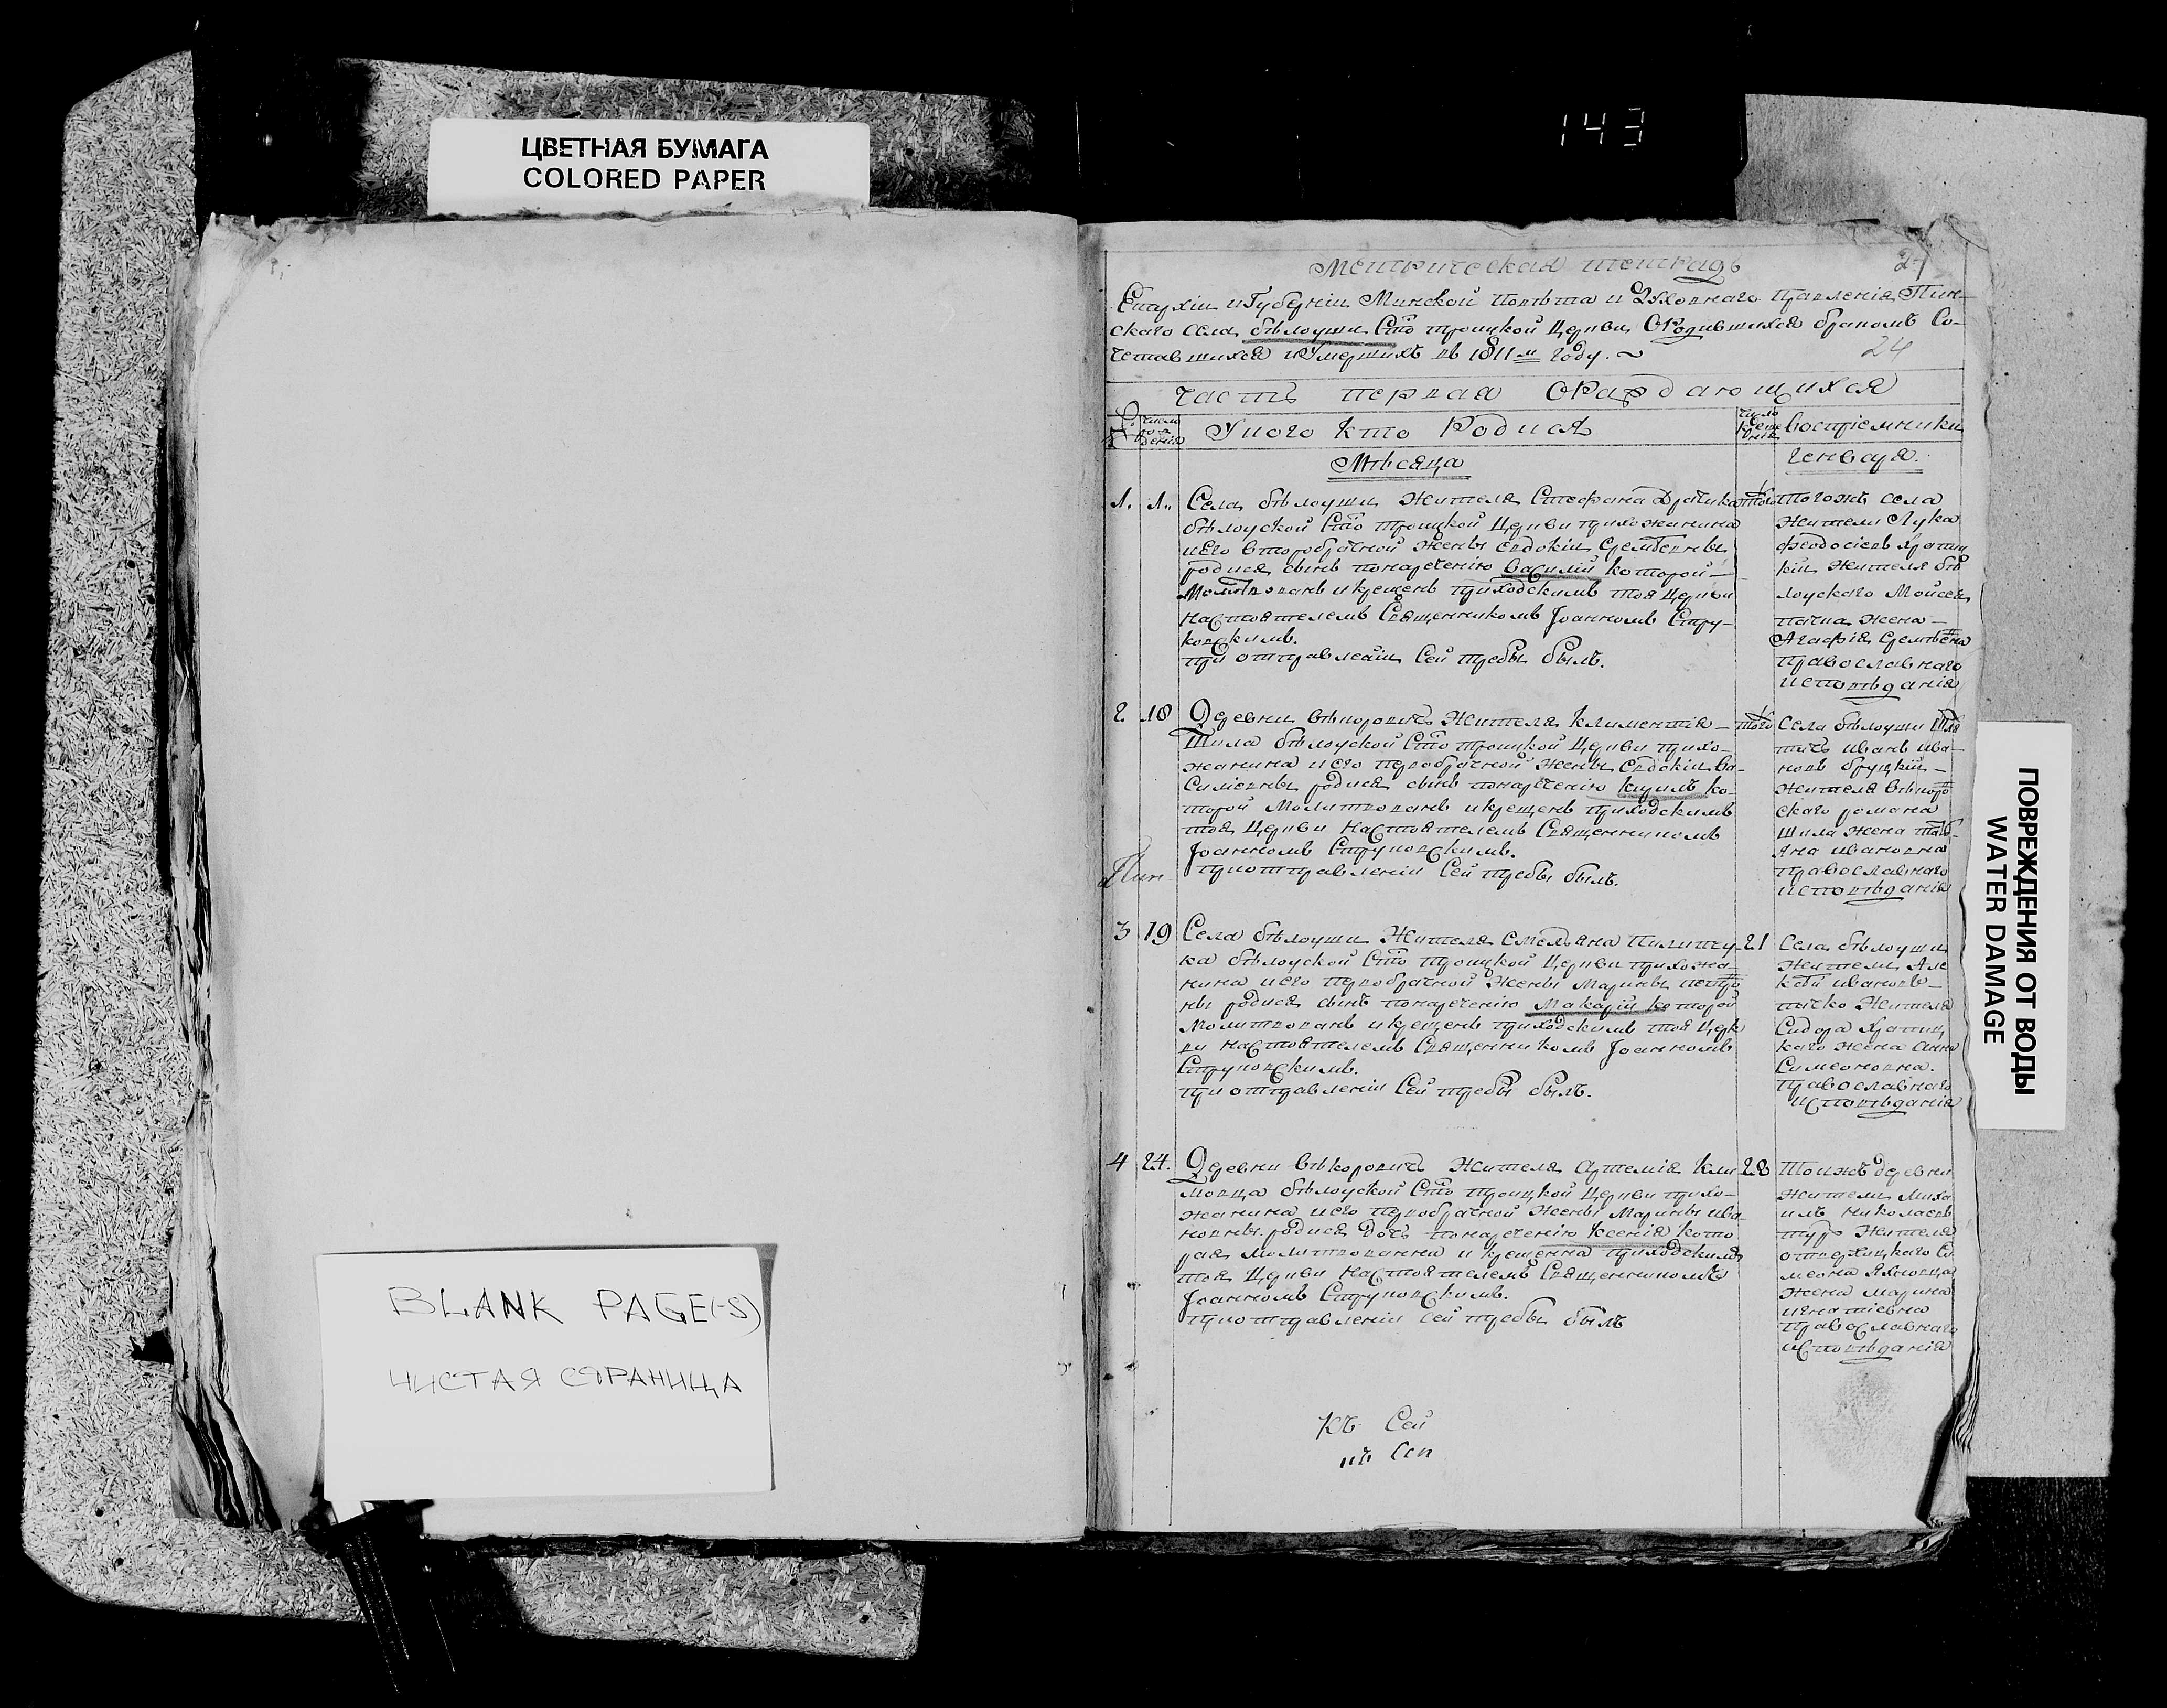 143
ЦВЕТНАЯ БУМАГА
COLORED PAPER
Метрическая тетрадь
24
Епархіи и Губерніи Минской повѣта и Духовнаго Правленія Пин-
скаго села бѣлоуши Сто троицкой Церкви О Родившихся бракомъ Со-
четавшихся и Умершихъ въ 1811м году. ~
24
Часть первая О Раждающихся
число рожденія
У кого кто Родися
число крещенія
воспріемники
Мѣсяца
Генваря
1. 1. Села бѣлоуши Жителя Стефана
бѣлоуской Сто троицкой Церкви прихожанина
и его второбрачной жены Евдокіи
родися сынъ понареченію василій которой
Молитвованъ и крещенъ приходскимъ тоя Церкви
настоятелемъ Священникомъ Іоанномъ Стру-
ковскимъ.
при отправленіи Сей требы былъ.
того
тогожъ села
Жители Лука
феодосіевъ
кій Жителя бѣ
лоускаго Мойсея
жена
Агафія
православнаго
исповѣданія
2 18 Деревни вѣкоровичъ Жителя климентія
Шила бѣлоуской Сто троицкой Церкви прихо-
жанина и его первобрачной жены Евдокіи Ва-
силіевны родися сынъ понареченію кирилъ ко-
торой Молитвованъ и крещенъ приходскимъ
тоя Церкви настоятелемъ Священникомъ
Іоанномъ Струковскимъ.
при отправленіи Сей требы былъ.
того
Села бѣлоуши
иванъ ива-
новъ
Жителя
скаго романа
Шила жена
яна ивановна
православнаго
исповѣданія
3 19 Села бѣлоуши Жителя Емельяна
ка бѣлоуской Сто троицкой Церкви прихожа-
нина и его первобрачной жены Марины
ны родися сынъ понареченію Макарій которой
Молитвованъ и крещенъ приходскимъ тоя Церк
ви настоятелемъ Священникомъ Іоанномъ
Струковскимъ.
при отправленіи Сей требы былъ.
21
Села бѣлоуши
Жители Але
ксѣй ивановъ
Жителя
Сидора
каго жена анна
Симеоновна.
православнаго
исповѣданія
4 24. Деревни вѣкоровичъ Жителя Артемія Кли
мовца бѣлоуской Сто троицкой Церкви прихо-
жанина и его первобрачной жены Марины ива-
новны родися дочь понареченію ксенія кото
рая молитвованна и крещенна приходскимъ
тоя Церкви настоятелемъ Священникомъ
Іоанномъ Струковскимъ.
при отправленіи сей требы былъ
28
тоижъ деревни
Жители Миха
илъ николаевъ
Жителя
Си
меона
жена марина
игнатіевна
православнаго
исповѣданія
Пин
къ Сей
BLANK PAGE(-S)
ЧИСТАЯ СТРАНИЦА
ПОВРЕЖДЕНИЯ ОТ ВОДЫ
WATER DAMAGE